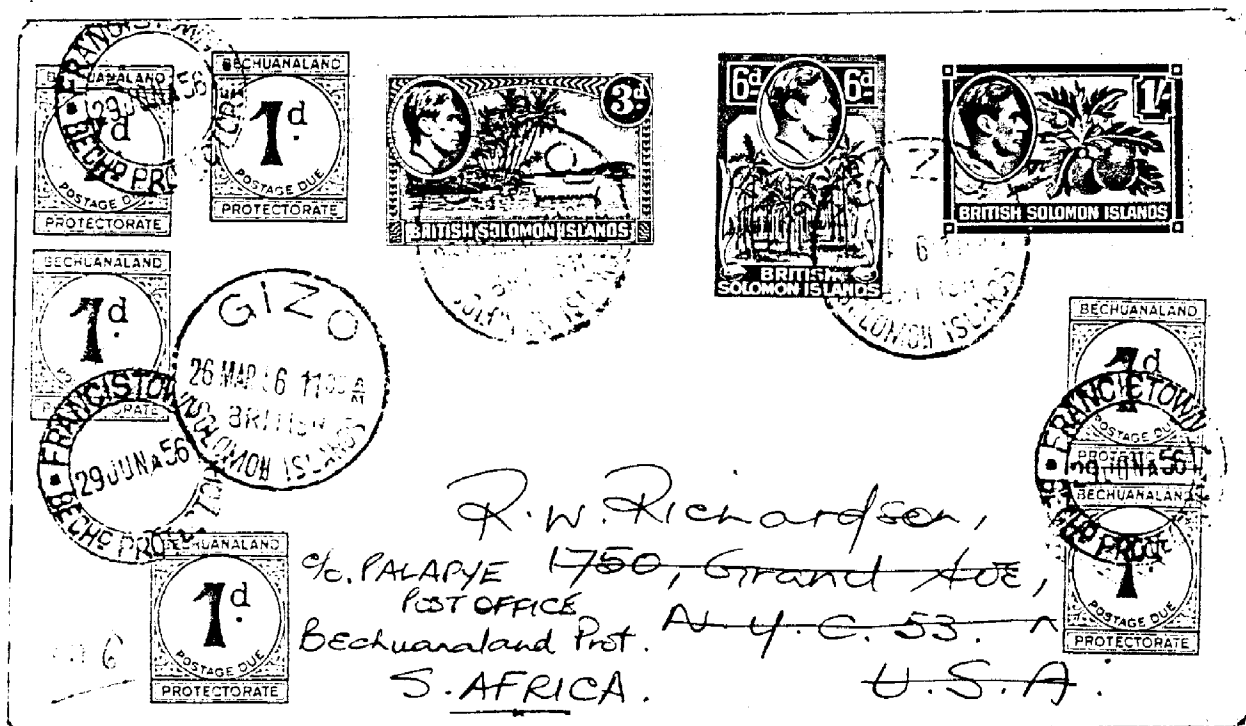 BECHUANALAND
1d
POSTAGE DUE
PROTECTORATE
FRANCISTOWN
29 JUN A 56
BECHD PROT
BECHUANALAND
1d
POSTAGE DUE
PROTECTORATE
3d
BRITISH SOLOMON ISLANDS
6d 6d
BRITISH
SOLOMON ISLANDS
1/-
BRITISH SOLOMON ISLANDS
BECHUANALAND
1d
FRANCISTOWN
29 JUN A 56
BECHD PROT
GIZO
26 MAR 56 11
BRITISH
SOLOMON ISLANDS
SOLOMON ISLANDS
BECHUANALAND
1d
POSTAGE DUE
FRANCISTOWN
29 JUN A 56
BECHUANALAND
1
POSTAGE DUE
PROTECTORATE
BECHUANALAND
1d
POSTAGE DUE
PROTECTORATE
R. W. Richardson,
c/o. PALAPYE 1750, Grand Ave,
POST OFFICE
Bechuanaland Prot. N.Y.C. 53.
S. AFRICA. U.S.A.
6